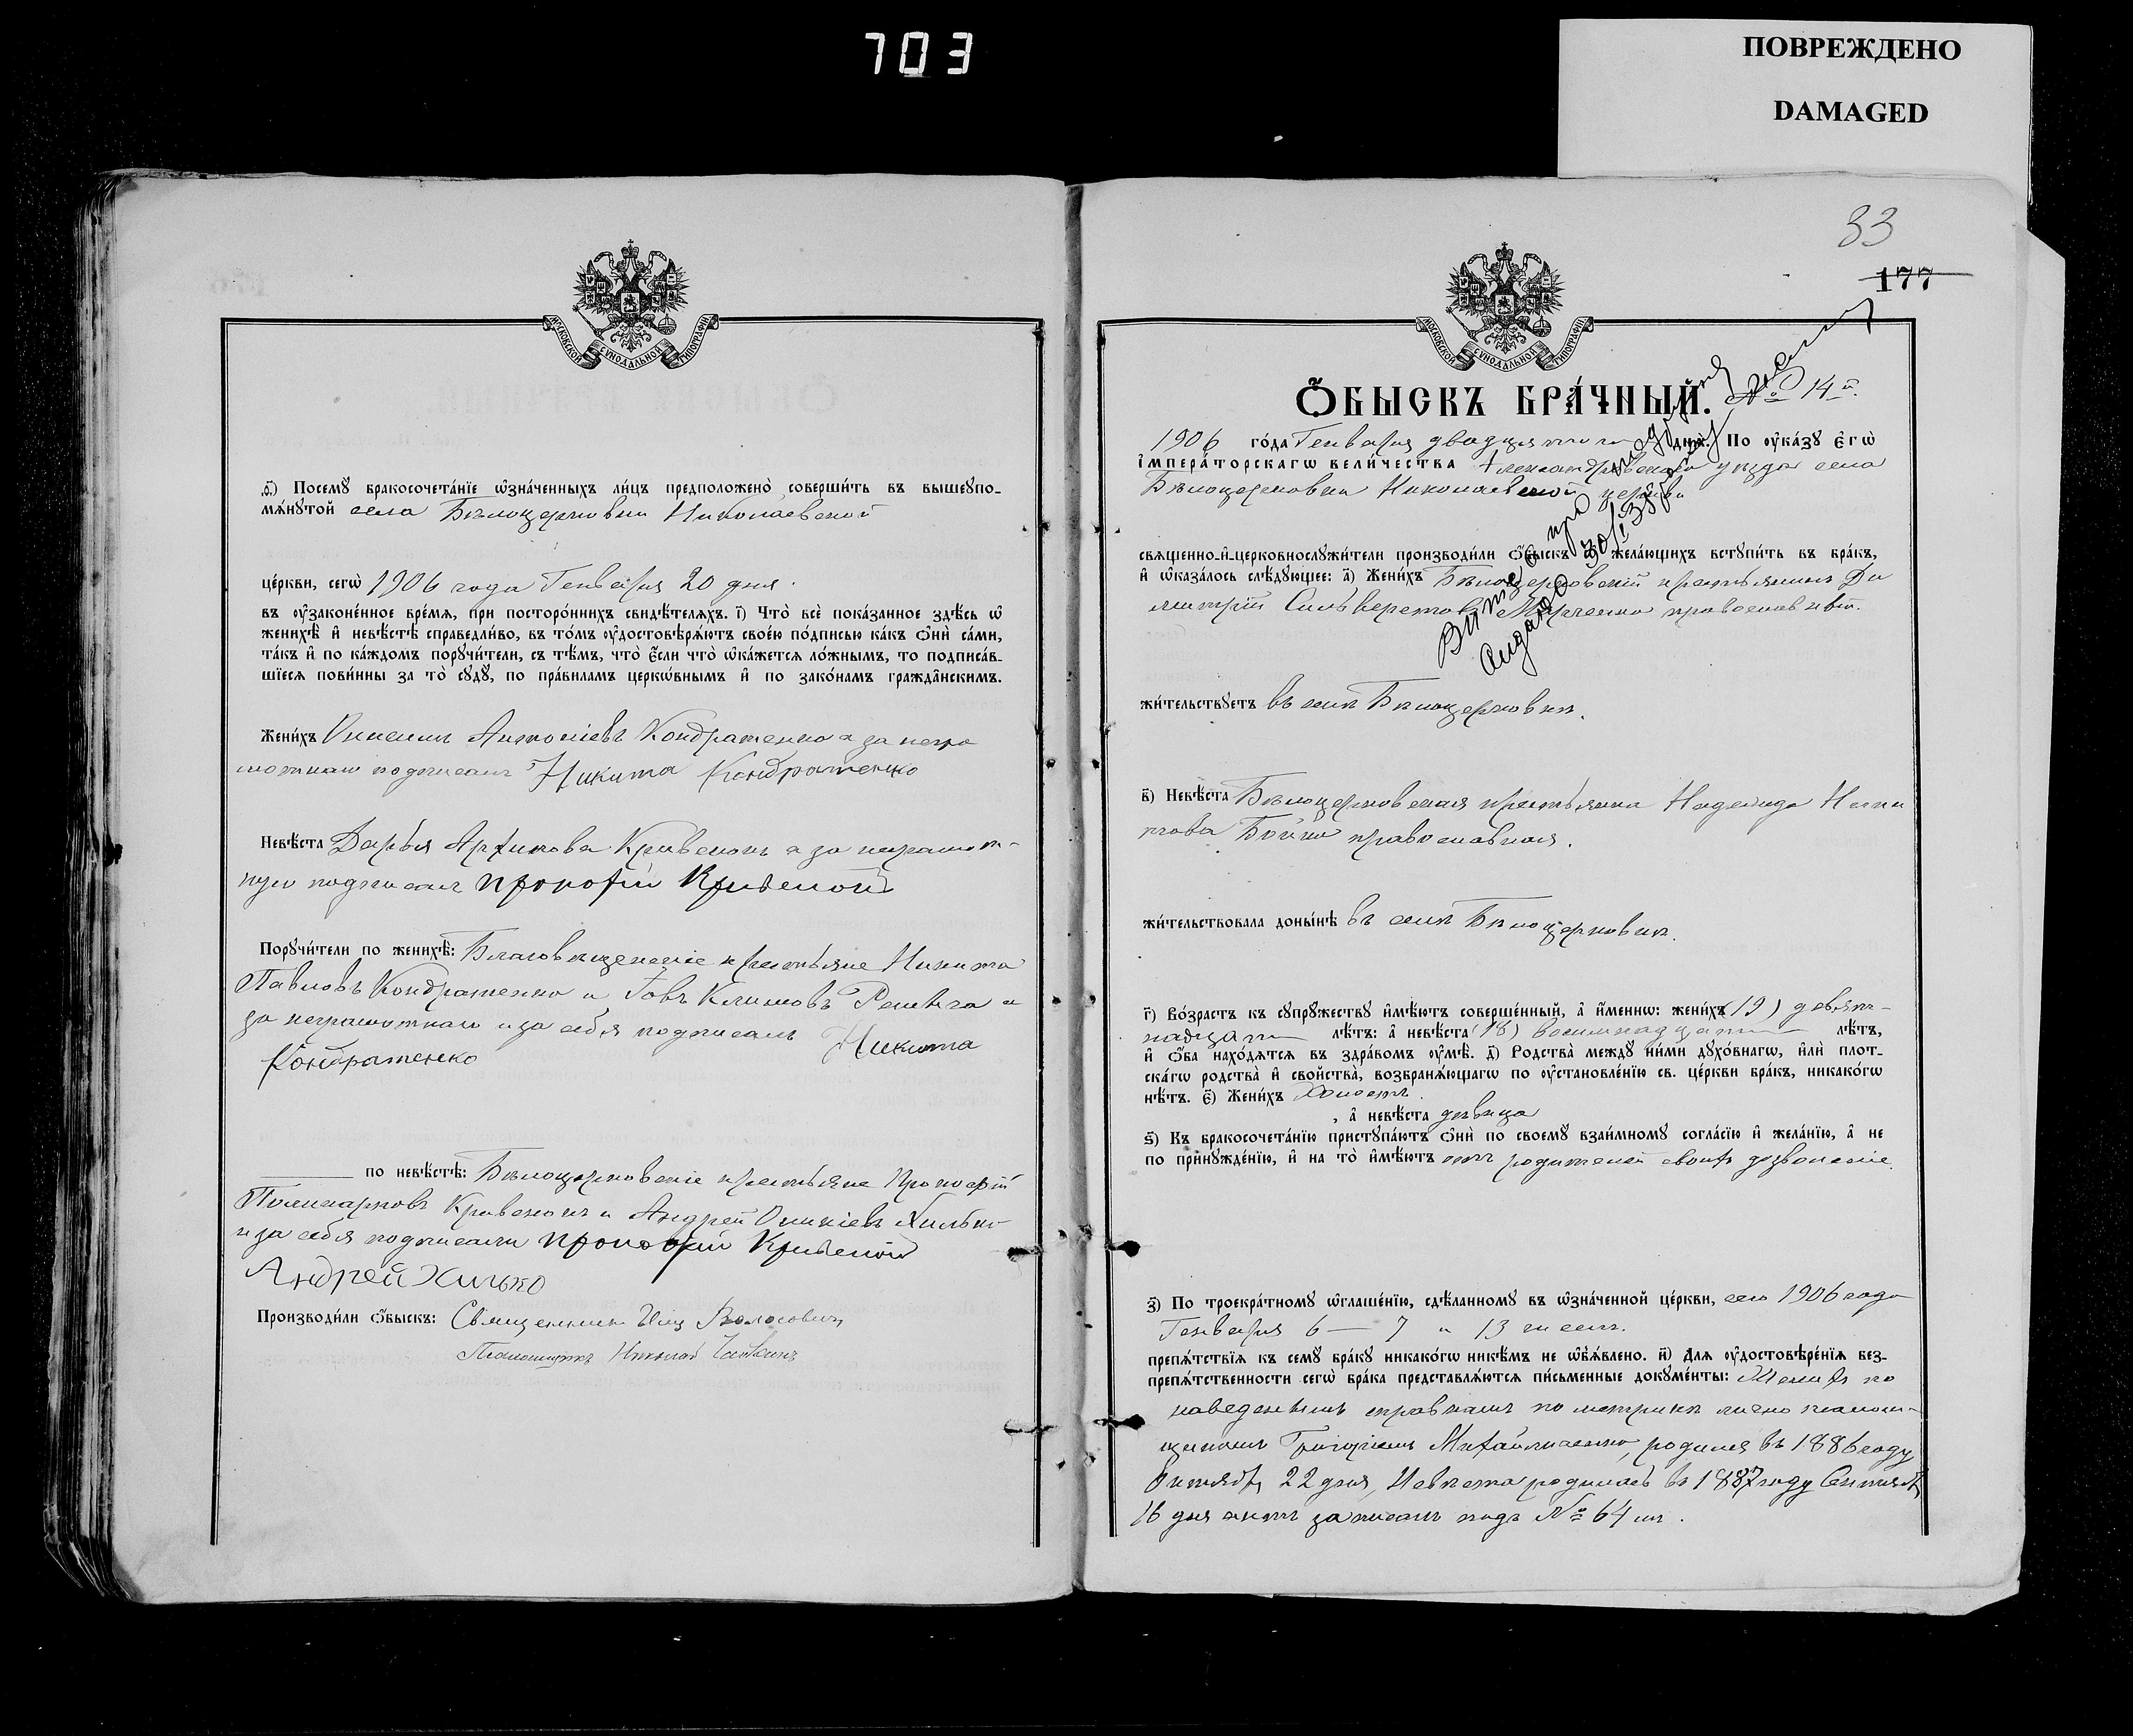 703
ПОВРЕЖДЕНО
DAMAGED
МОСКОВСКОЙ СѴНОДАЛЬНОЙ ТИПОГРАФІИ
.ѳ҃.) Посемꙋ̀ бракосочета́нїе ѡ҆зна́ченныхъ ли́цъ предположено̀ соверши́ть въ вышеꙋпо-
мѧ́нꙋтой села Бѣлоцерковки Николаевской
це́ркви, сегѡ̀ 1906 года Генваря 20 дня.
въ ᲂу҆зако́ненное вре́мѧ, при посторо́ннихъ свидѣ́телѧхъ. і҃) Что̀ всѐ пока́занное здѣ́сь ѡ҆
женихѣ̀ и҆ невѣ́стѣ справедли́во, въ то́мъ ᲂу҆достовѣрѧ́ютъ свое́ю по́дписью ка́къ ѻ҆нѝ са́ми,
та́къ и҆ по ка́ждомъ порꙋчи́тели, съ тѣ́мъ, что̀ є҆́сли что̀ ѡ҆ка́жетсѧ ло́жнымъ, то подписа́в-
шїесѧ пови́нны за то̀ сꙋдꙋ̀, по пра́виламъ церко́внымъ и҆ по зако́намъ гражда̑нскимъ.
Жени́хъ Онисимъ Антоніевъ Кондратенко а за негра
мотнаго подписалъ Никита Кондратенко
Невѣ́ста Дарья Архипова Кривенокъ а за неграмот-
ную подписалъ Прокофій Кривенокъ
Порꙋчи́тели по женихѣ̀: Благовѣщенскіе крестьяне Никита
Павловъ Кондратенко и Іовъ Климовъ а
за неграмотнаго и за себя подписалъ Никита
Кондратенко
по невѣ́стѣ: Бѣлоцерковскіе крестьяне Прокофій
Поликарповъ Кривенокъ и Андрей Хилько
и за себя подписали Прокофій Кривенокъ
Андрей Хилько
Производи́ли ѻ҆́быскъ: Священникъ Волосовичъ
Псаломщикъ Николай
33
177
МОСКОВСКОЙ СѴНОДАЛЬНОЙ ТИПОГРАФІИ
Ѻ҆́БЫСКЪ БРА́ЧНЫЙ. № 14й.
1906 го́да Генваря двадцятаго днѧ̀. По ᲂу҆ка́зꙋ є҆гѡ̀
і҆мпера́торскагѡ вели́чества Александровскаго уѣзда села
Бѣлоцерковки Николаевской церкви
свѧщенно-и҆-церковнослꙋжи́тели производи́ли ѻ҆́быскъ ѡ҆ жела́ющихъ встꙋпи́ть въ бра́къ,
и҆ ѡ҆каза́лось слѣ́дꙋющее: а҃) Жени́хъ Бѣлоцерковскій крестьянинъ Ди
митрій Сильверстовъ Марченко православный.
жи́тельствꙋетъ въ селѣ Бѣлоцерковкѣ.
в҃) Невѣ́ста Бѣлоцерковская крестьянка Надежда Ники
това Бойко православная.
жи́тельствовала доны́нѣ въ селѣ Бѣлоцерковкѣ.
г҃) Во́зрастъ къ сꙋпрꙋ́жествꙋ и҆мѣ́ютъ соверше́нный, а҆ и҆́меннѡ: жени́хъ (19) девят-
надцать лѣ́тъ: а҆ невѣ́ста (18) восемнадцать лѣ́тъ,
и҆ ѻ҆́ба нахо́дѧтсѧ въ здра́вомъ ᲂу҆мѣ̀. д҃) Родства̀ междꙋ ни́ми дꙋхо́внагѡ, и҆лѝ плот-
ска́гѡ родства̀ и҆ свойства̀, возбранѧ́ющагѡ по ᲂу҆становле́нїю св. це́ркви бра́къ, никако́гѡ
нѣ́тъ. є҃) Жени́хъ холостъ.
, а҆ невѣ́ста дѣвица
ѕ҃) Къ бракосочета́нїю пристꙋпа́ютъ ѻ҆нѝ по своемꙋ̀ взаи́мномꙋ согла́сїю и҆ жела́нїю, а҆ не
по принꙋжде́нїю, и҆ на то̀ и҆мѣ́ютъ отъ родителей своихъ дозволеніе.
з҃) По троекра́тномꙋ ѡ҆глаше́нїю, сдѣ́ланномꙋ въ ѡ҆зна́ченной це́ркви, сего 1906 года
Генваря 6 — 7 и 13 чиселъ.
препѧ́тствїѧ къ семꙋ̀ бра́кꙋ никако́гѡ никѣ́мъ не ѡ҆б̾ѧ́влено. и҃) Длѧ ᲂу҆достовѣре́нїѧ без-
препѧ́тственности сегѡ̀ бра́ка представлѧ́ютсѧ пи́сьменные докꙋме́нты: Женихъ по
наведеннымъ справкамъ по метрикѣ лично псалом-
щикомъ Григоріемъ Михайличенко, родился въ 1886 году
Октября 22 дня, Невѣста родилась въ 1887 году Сентября
16 дня актъ записанъ подъ № 64 мъ.